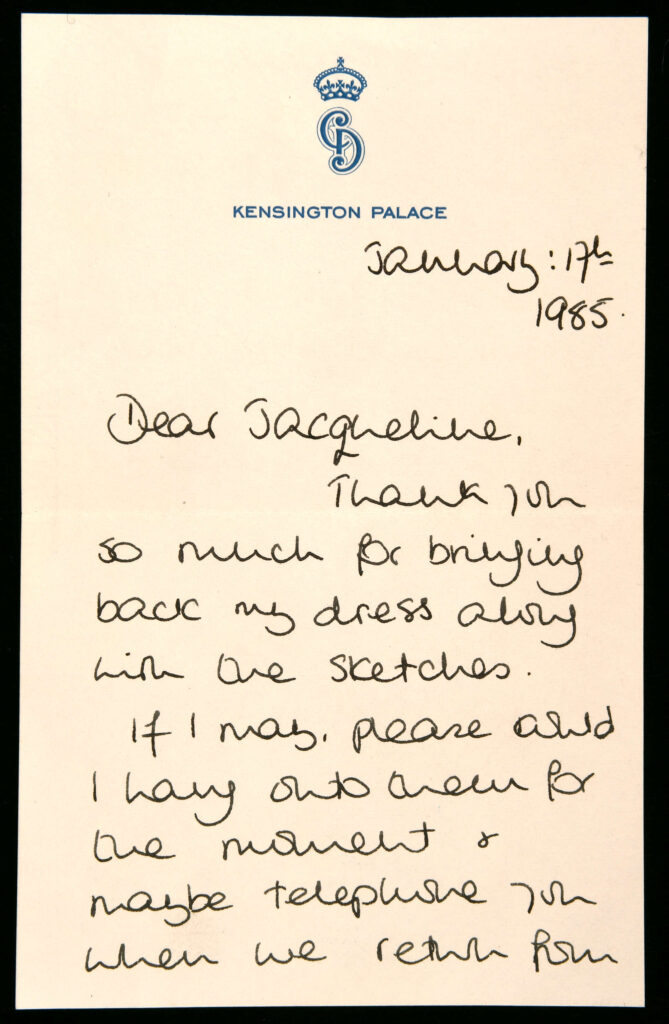 CD
KENSINGTON PALACE
January: 17th
1985.
Dear Jacqueline,
Thank you
so much for bringing
back my dress along
with the sketches.
If I may, please could
I hang onto them for
the moment &
maybe telephone you
when we return from